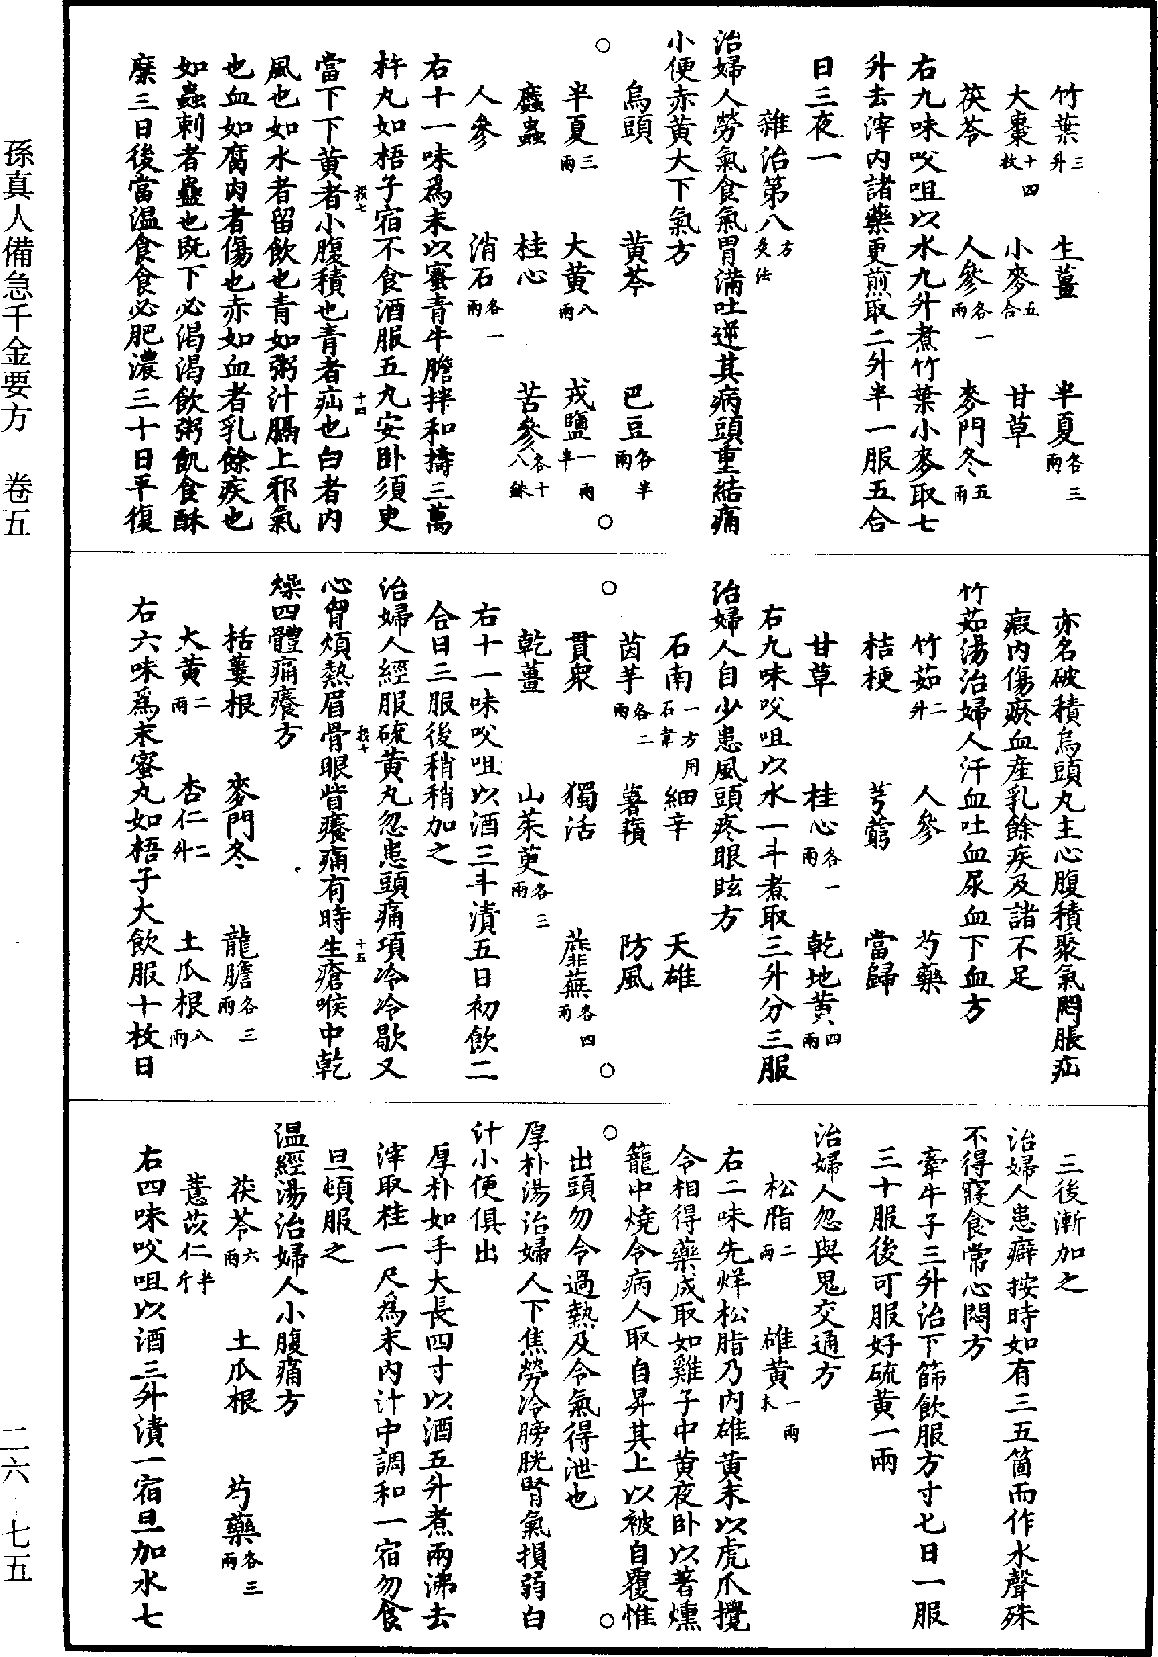 竹葉三升 生薑 半夏各三兩
大棗十四枚 小麥五合 甘草
茯苓 人參各一兩 麥門冬五兩
右九味㕮咀以水九升煮竹葉小麥取七
升去滓內諸藥更煎取二升半一服五合
日三夜一
雜治第八方 灸法
治婦人勞氣食氣胃滿吐逆其病頭重結痛
小便赤黃大下氣方
烏頭 黃芩 巴豆各半兩
半夏三兩 大黃八兩 戎鹽一兩半
䗪蟲 桂心 苦參各十八銖
人參 消石各一兩
右十一味為末以蜜青牛膽拌和擣三萬
杵丸如梧子宿不食酒服五丸安臥須臾
當下下黃者小腹積也青者疝也白者內
風也如水者留飲也青如粥汁膈上邪氣
也血如腐肉者傷也赤如血者乳餘疾也
如蟲刺者蠱也既下必渴渴飲粥飢食酥
糜三日後當溫食食必肥濃三十日平復
亦名破積烏頭丸主心腹積聚氣悶脹疝
瘕內傷瘀血產乳餘疾及諸不足
竹茹湯治婦人汗血吐血尿血下血方
竹茹二升 人參 芍藥
桔梗 芎藭 當歸
甘草 桂心各一兩 乾地黃四兩
右九味㕮咀以水一斗煮取三升分三服
治婦人自少患風頭疼眼眩方
石南一方用石韋 細辛 天雄
茵芋各二兩 薯蕷 防風
貫眾 獨活 蘼蕪各四兩
乾薑 山茱萸各三兩
右十一味㕮咀以酒三斗漬五日初飲二
合日三服後稍稍加之
治婦人經服硫黃丸忽患頭痛項冷冷歇又
心胷煩熱眉骨眼眥癢痛有時生瘡喉中乾
燥四體痛癢方
栝蔞根 麥門冬 龍膽各三兩
大黃二兩 杏仁二升 土瓜根八兩
右六味為末蜜丸如梧子大飲服十枚日
三後漸加之
治婦人患癖按時如有三五箇而作水聲殊
不得寢食常心悶方
牽牛子三升治下篩飲服方寸匕日一服
三十服後可服好硫黃一兩
治婦人忽與鬼交通方
松脂二兩 雄黃一兩末
右二味先烊松脂乃內雄黃末以虎爪攪
令相得藥成取如雞子中黃夜臥以著燻
籠中燒令病人取自昇其上以被自覆惟
出頭勿令過熱及令氣得泄也
厚朴湯治婦人下焦勞冷膀胱腎氣損弱白
汁小便俱出
厚朴如手大長四寸以酒五升煮兩沸去
滓取桂一尺為末內汁中調和一宿勿食
旦頓服之
溫經湯治婦人小腹痛方
茯苓六兩 土瓜根 芍藥各三兩
薏苡仁半斤
右四味㕮咀以酒三升漬一宿旦加水七
孫真人備急千金要方 卷五
二六–七五